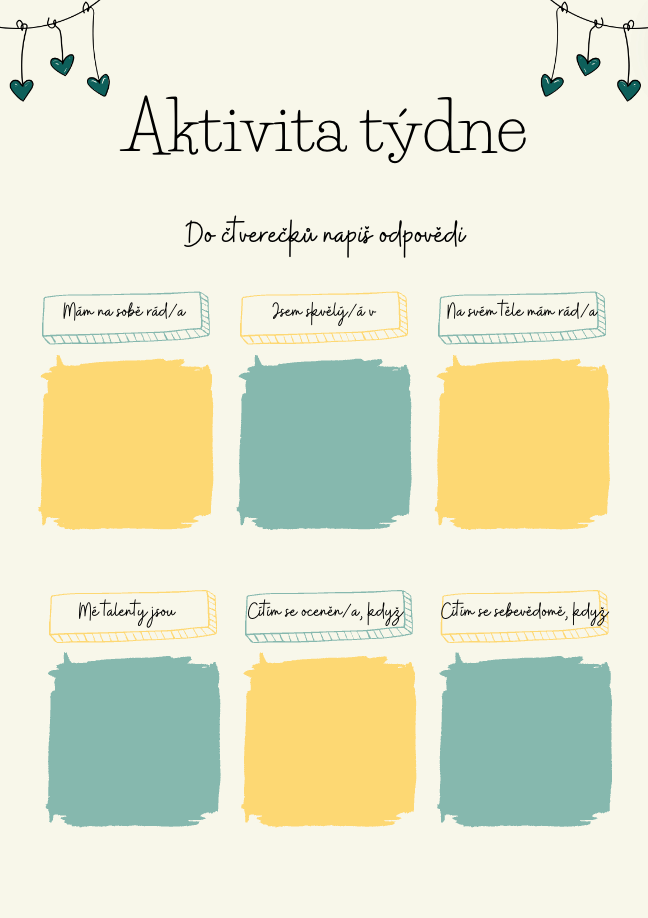 Aktivita týdne
Do čtverečků napiš odpovědi
Mám na sobě rád/a
Jsem skvělý/á v
Na svém těle mám rád/a
Mé talenty jsou
Cítím se oceněn/a, když
Cítím se sebevědomě, když